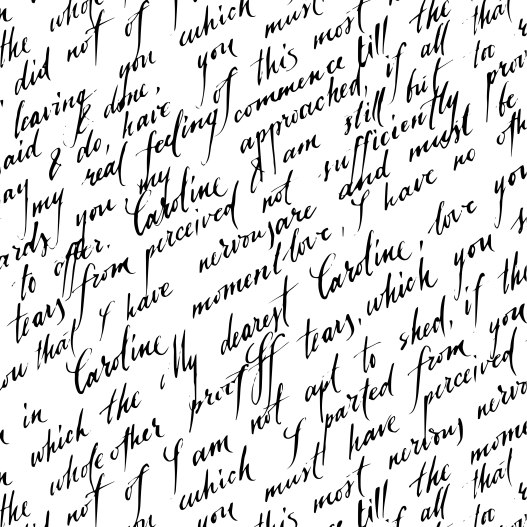 the whole
did not of
you which must
leaving & done, you this most the that
said & do, have of commence till
my real feeling approached, if all too
you my & am still but
to offer. Caroline not sufficiently
tears from perceived and must be
that I have nervous are I have no
in Caroline moment love, love
which the My dearest Caroline, you
the whole other proof of tears, which
did not of I am not apt to shed, if the
you which I parted from you
must have perceived
this most nervous
till the
if all that